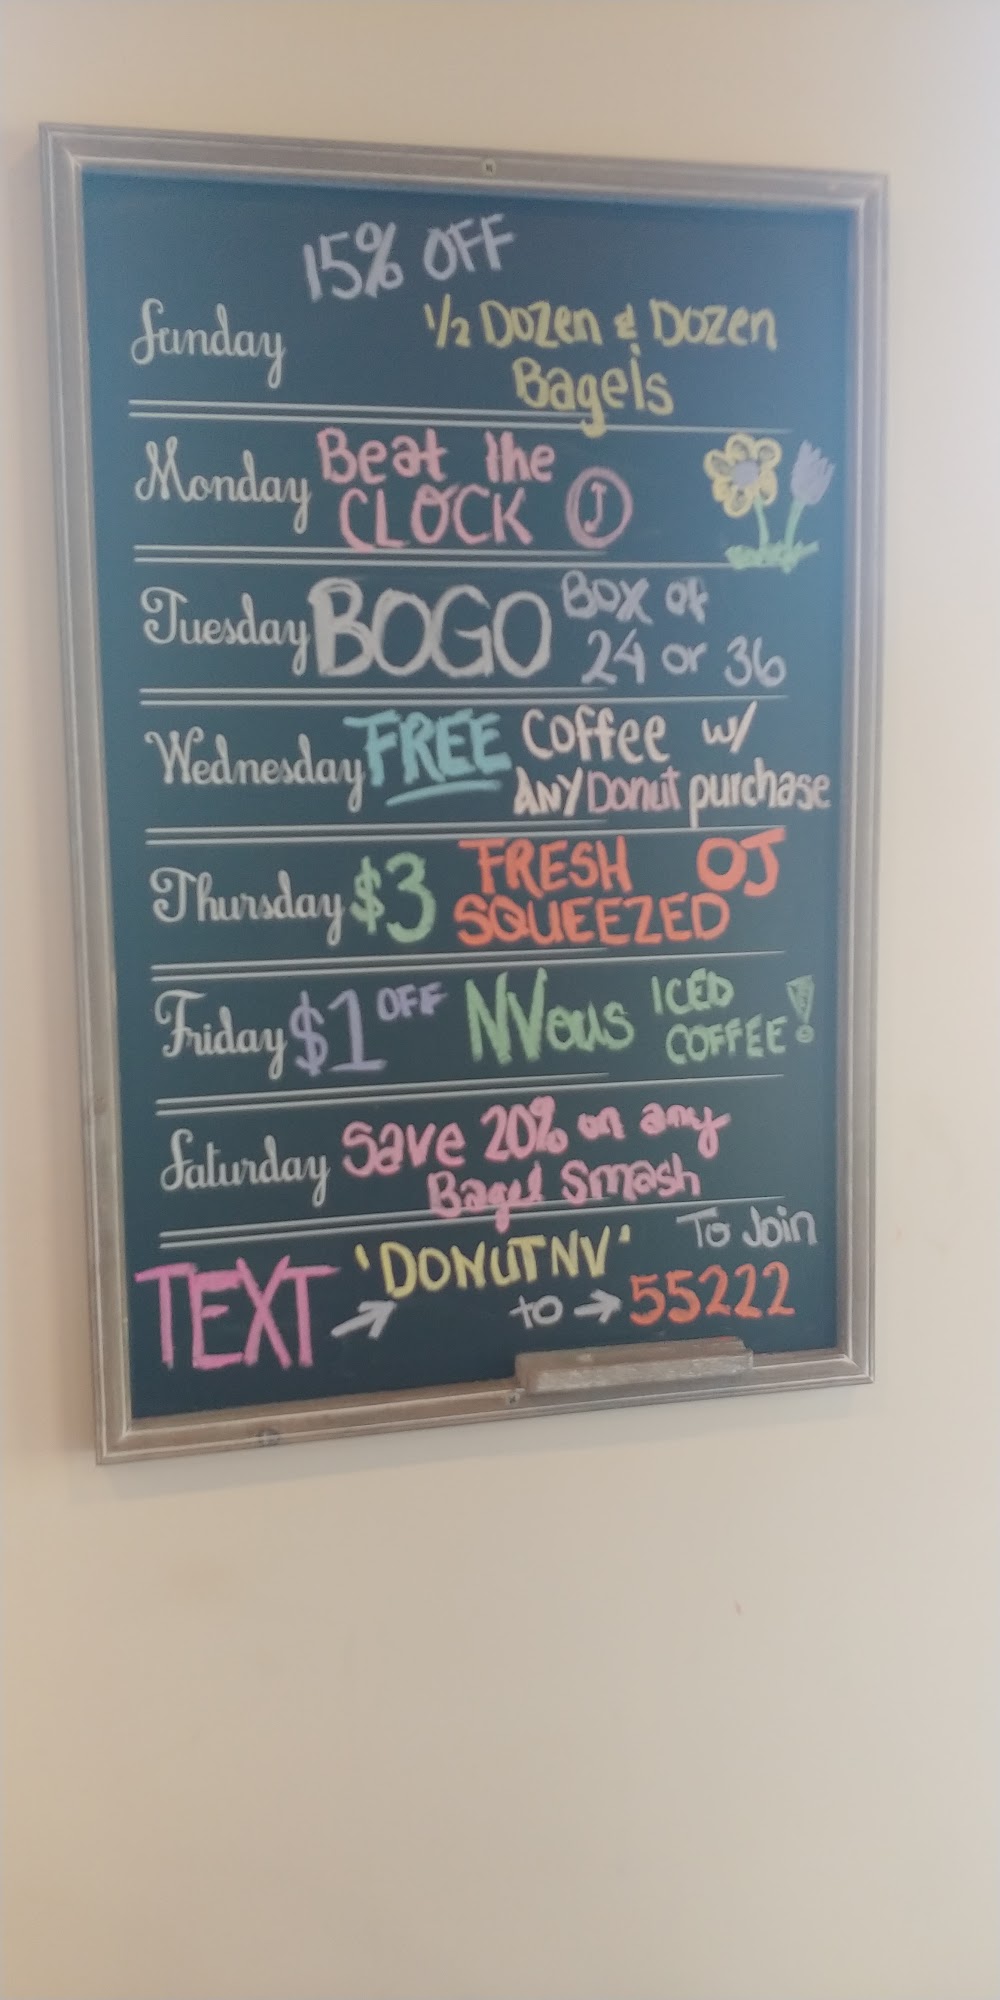 15% OFF
Sunday
1/2 Dozen & Dozen
Bagels
Monday Beat the
CLOCK
Tuesday BOGO Box of
24 or 36
Wednesday FREE Coffee w/
ANY Donut purchase
Thursday $3 FRESH OJ
SQUEEZED
Friday $1 OFF NVous ICED
COFFEE!
Saturday Save 20% on any
Bagel Smash
To Join
TEXT → 'DONUTNV'
to → 55222